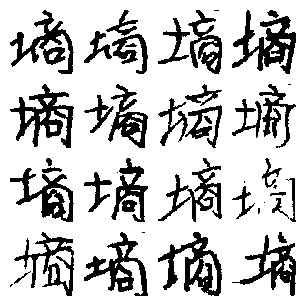 墒墒墒墒
墒墒墒墒
墒墒墒墒
墒墒墒墒